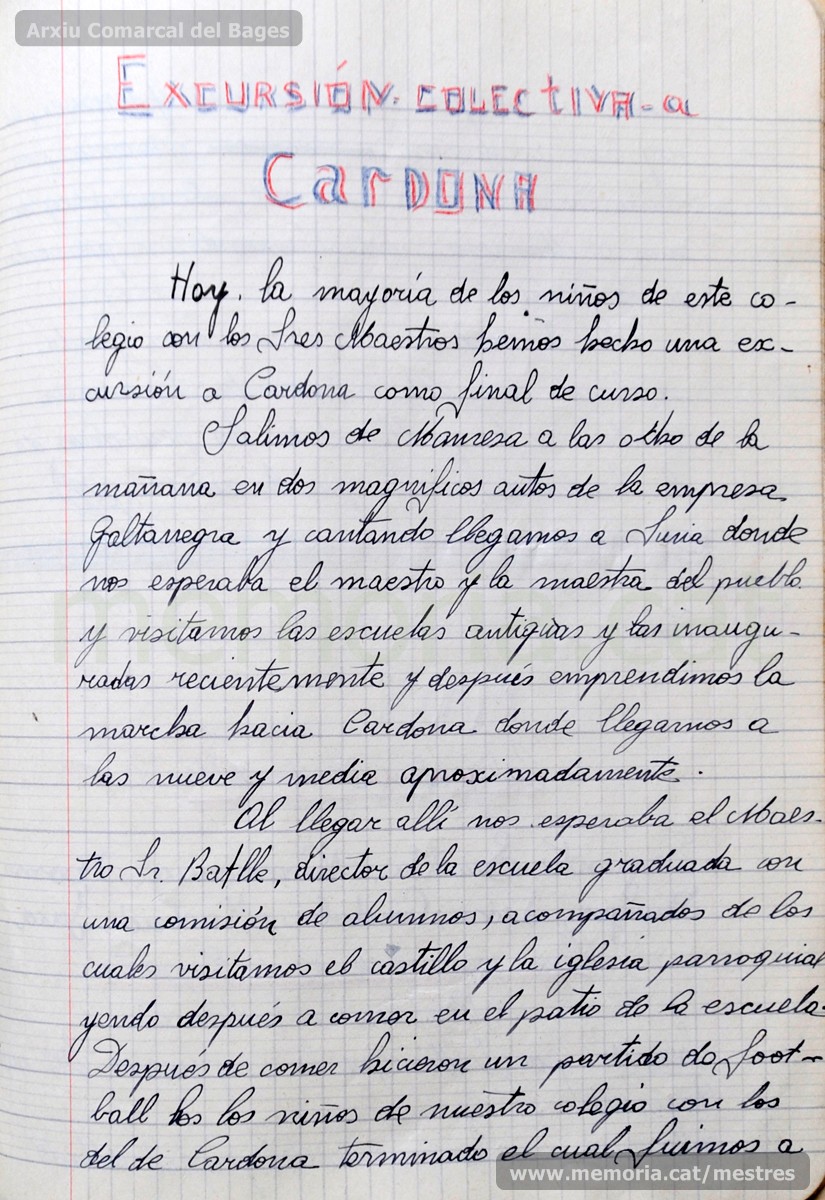 Arxiu Comarcal del Bages
EXCURSIÓN. COLECTIVA - a
CARDONA
Hoy. la mayoría de los niños de este co-
legio con los Sres Maestros hemos hecho una ex-
cursión a Cardona como final de curso.
Salimos de Manresa a las ocho de la
mañana en dos magníficos autos de la empresa
Galtanegra y cantando llegamos a Suria donde
nos esperaba el maestro y la maestra del pueblo
y visitamos las escuelas antiguas y las inaugu-
radas recientemente y después emprendimos la
marcha hacia Cardona donde llegamos a
las nueve y media aproximadamente.
Al llegar allí nos esperaba el Maes-
tro Sr. Batlle, director de la escuela graduada con
una comisión de alumnos, acompañados de los
cuales visitamos el castillo y la iglesia parroquial
yendo después a comer en el patio de la escuela.
Después de comer hicieron un partido de foot-
ball los los niños de nuestro colegio con los
del de Cardona terminado el cual fuimos a
www.memoria.cat/mestres